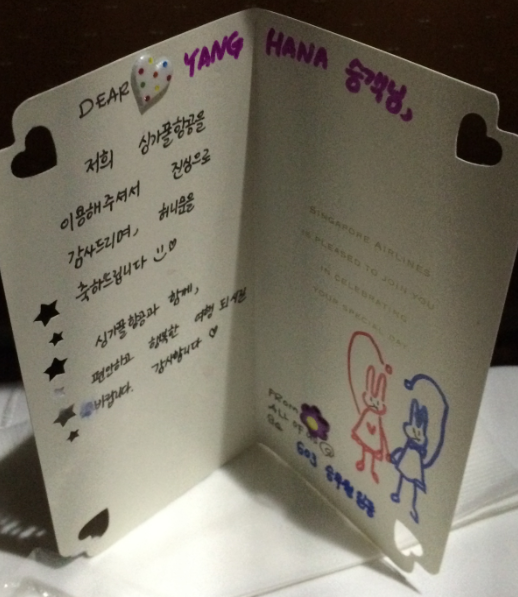 DEAR YANG HANA 승객님,
저희 싱가폴항공을
이용해주셔서 진심으로
감사드리며, 허니문을
축하드립니다
싱가폴항공과 함께,
편안하고 행복한 여행 되시길
바랍니다. 감사합니다
SINGAPORE AIRLINES
IS PLEASED TO JOIN YOU
IN CELEBRATING
YOUR SPECIAL DAY
FROM
ALL OF
603 승무원 일동